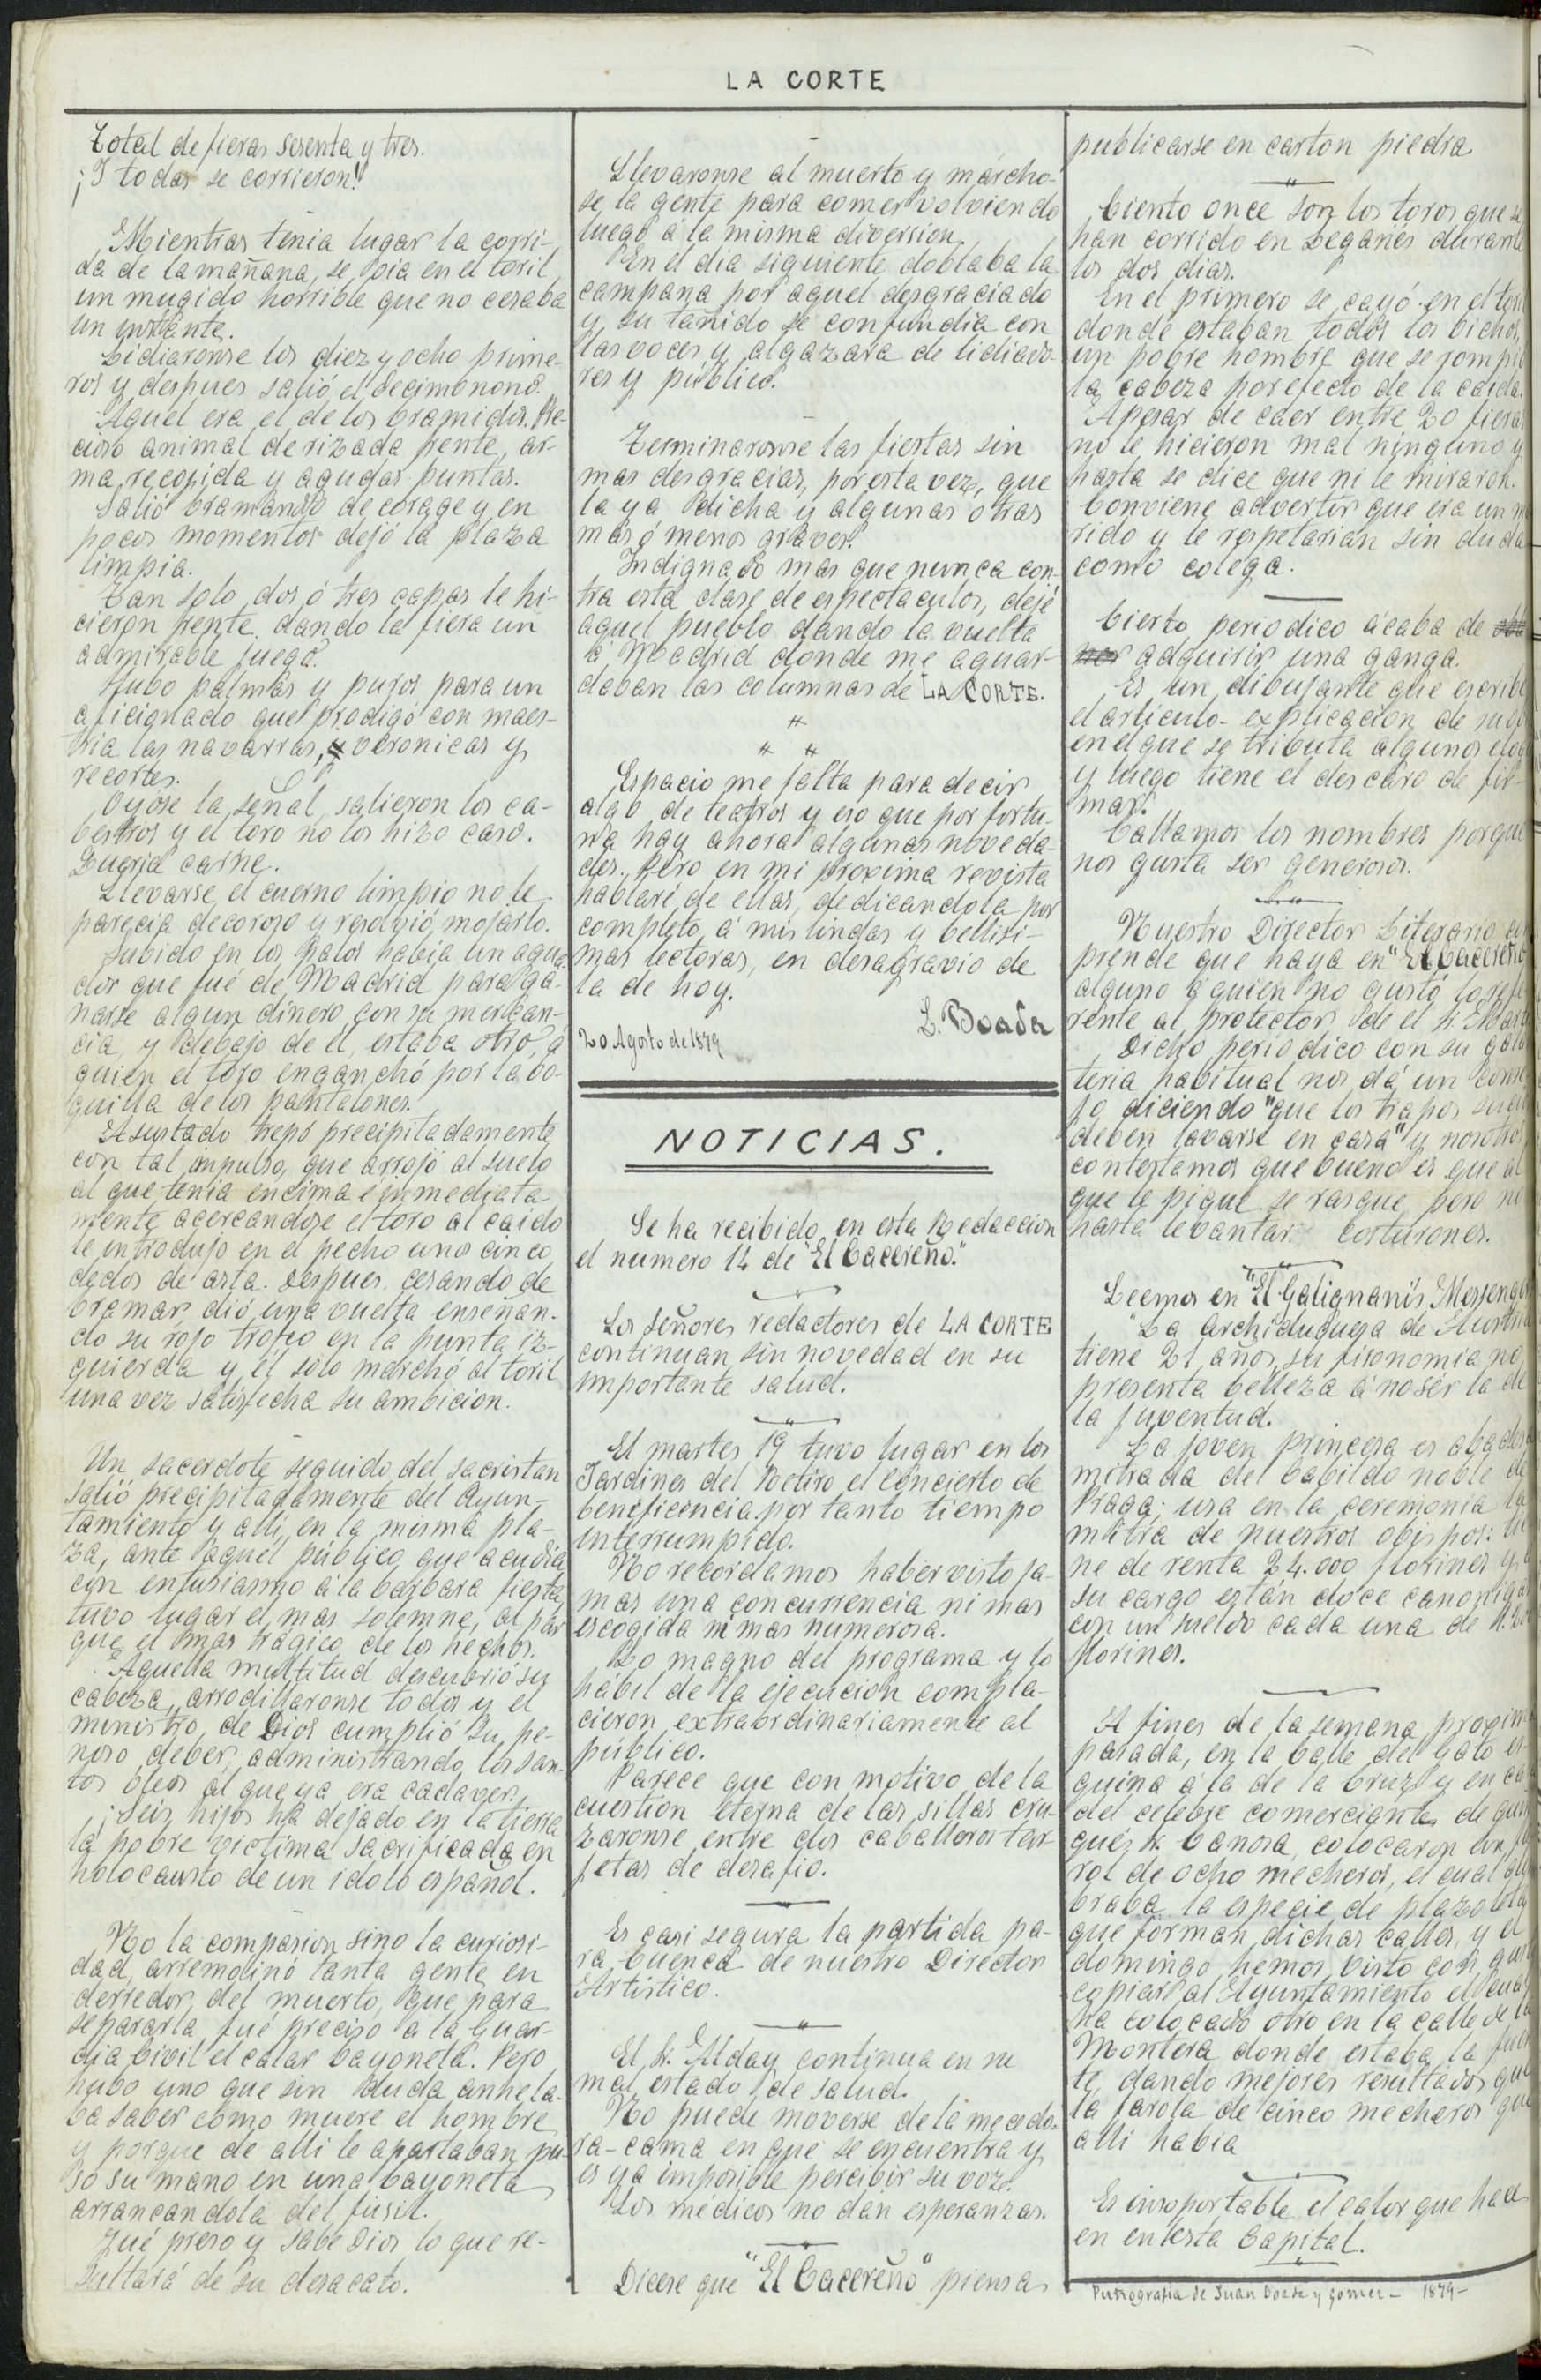 LA CORTE
Total de fieras sesenta y tres.
¡Y todas se corrieron!
Mientras tenia lugar la corri-
da de la mañana, se oia en el toril
un mugido horrible que no cesaba
un instante.
Lidiaronse los diez y ocho prime-
ros y despues salió el decimonono.
Aquel era el de los bramidos. Pre-
cioso animal de rizada frente, ar-
ma recogida y agudas puntas.
Salió bramando de corage y en
pocos momentos dejó la plaza
limpia.
Tan solo dos ó tres capas le hi-
cieron frente, dando la fiera un
admirable juego.
Hubo palmas y puros para un
aficionado que prodigó con maes-
tria las navarras, veronicas y
recortes.
Oyose la señal, salieron los ca-
bestros y el toro no los hizo caso.
Queria carne.
Llevarse el cuerno limpio no le
parecia decoroso y resolvió mojarlo.
Subido en los palos habia un agua-
dor que fué de Madrid para ga-
narse algun dinero con su mercan-
cia, y debajo de el, estaba otro, á
quien el toro enganchó por la bo-
quilla de los pantalones.
Asustado trepó precipitadamente
con tal impulso, que arrojó al suelo
al que tenia encima é inmediata-
mente acercandose el toro al caido
le introdujo en el pecho unos cinco
dedos de asta. Despues, cesando de
bramar, dió una vuelta enseñan-
do su rojo trofeo en la punta iz-
quierda y él solo marchó al toril
una vez satisfecha su ambicion.
Un sacerdote seguido del sacristan
salió precipitadamente del Ayun-
tamiento y alli, en la misma pla-
za, ante aquel público que acudia
con entusiasmo á la barbara fiesta
tuvo lugar el mas solemne, al par
que el mas trágico de los hechos.
Aquella multitud descubrió su
cabeza, arrodillaronse todos y el
ministro de Dios cumplió su pe-
noso deber, administrando los san-
tos óleos al que ya era cadaver.
¡Seis hijos ha dejado en la tierra
la pobre victima sacrificada en
holocausto de un idolo español.
No la compasion sino la curiosi-
dad, arremolinó tanta gente en
derredor del muerto, que para
separarla fué preciso á la Guar-
dia Civil el calar bayoneta. Pero
hubo uno que sin duda anhela-
ba saber como muere el hombre
y porque de alli le apartaban pu-
so su mano en una bayoneta
arrancandola del fusil.
Fué preso y sabe Dios lo que re-
sultará de su desacato.
Llevaronse al muerto y marcho-
se la gente para comer volviendo
luego á la misma diversion.
En el dia siguiente doblaba la
campana por aquel desgraciado
y su tañido se confundia con
las voces y algazara de lidiado-
res y público.
Terminaronse las fiestas sin
mas desgracias, por esta vez, que
la ya dicha y algunas otras
mas ó menos graves.
Indignado mas que nunca con-
tra esta clase de espectaculos, dejé
aquel pueblo dando la vuelta
á Madrid donde me aguar-
daban las columnas de LA CORTE.
Espacio me falta para decir
algo de teatros y eso que por fortu-
na hay ahora algunas noveda-
des. Pero en mi proxima revista
hablaré de ellas, dedicandola por
completo á mis lindas y bellisi-
mas lectoras, en desagravio de
la de hoy.
L. Boada
20 Agosto de 1879
NOTICIAS.
Se ha recibido en esta Redaccion
el numero 14 de "El Cacereño."
Los señores redactores de LA CORTE
continuan sin novedad en su
importante salud.
El martes 19 tuvo lugar en los
Jardines del Retiro el concierto de
beneficencia por tanto tiempo
interrumpido.
No recordamos haber visto ja-
mas una concurrencia ni mas
escogida ni mas numerosa.
Lo magno del programa y lo
hábil de la ejecucion compla-
cieron extraordinariamente al
público.
Parece que con motivo de la
cuestion eterna de las sillas cru-
zaronse entre dos caballeros tar-
jetas de desafio.
Es casi segura la partida pa-
ra Cuenca de nuestro Director
Artistico.
El Sr. Alday continua en su
mal estado de salud.
No puede moverse de la mecedo-
ra-cama en que se encuentra y
es ya imposible percibir su voz.
Los medicos no dan esperanzas.
Dicese que "El Cacereño" piensa
publicarse en carton piedra.
Ciento once son los toros que se
han corrido en Leganes durante
los dos dias.
En el primero se cayó en el toril
donde estaban todos los bichos,
un pobre hombre que se rompió
la cabeza por efecto de la caida.
Apesar de caer entre 20 fieras
no le hicieron mal ninguno y
hasta se dice que ni le miraron.
Conviene advertir que era un ma
rido y le respetarian sin duda
como colega.
Cierto periodico acaba de
adquirir una ganga.
Es un dibujante que escribe
el articulo-explicacion de su
en el que se tributa algunos elog
y luego tiene el descaro de fir-
mar.
Callamos los nombres porque
nos gusta ser generosos.
Nuestro Director Literario com
prende que haya en "El Cacereño"
alguno á quien no gustó lo refe
rente al protector de el Sr.
Dicho periodico con su gala
teria habitual nos dá un conse
jo diciendo "que los trapos sucios
deben lavarse en casa" y nosotros
contestamos que bueno es que al
que le pique se rasque, pero no
hasta levantar costurones.
Leemos en "El Galignani's Messenger
"La archiduquesa de Austria
tiene 21 años, su fisonomia no
presenta belleza á no ser la de
la juventud.
La joven princesa es abadesa
mitrada del Cabildo noble de
Praga; usa en la ceremonia la
mitra de nuestros obispos: tie
ne de renta 24.000 florines y á
su cargo están doce canonigas
con un sueldo cada una de
florines.
A fines de la semana proxima
pasada, en la Calle del Gato es-
quina á la de la Cruz y en casa
del celebre comerciante de
Sr. Canosa, colocaron un fa
rol de ocho mecheros, el cual alum
braba la especie de plazoleta
que forman dichas calles, y el
domingo hemos visto con gus
copiar al Ayuntamiento el cual
ha colocado otro en la calle de la
Montera donde estaba la fuen
te, dando mejores resultados que
la farola de cinco mecheros que
alli habia
Es insoportable el calor que hace
en en esta Capital.
de Juan Boada y Gomez - 1879-